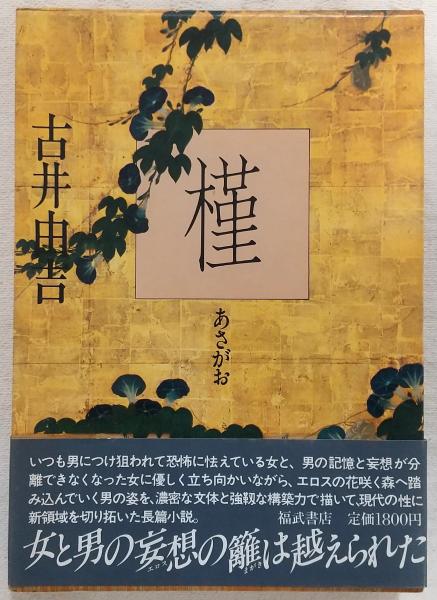 槿
あさがお
古井由吉
いつも男につけ狙われて恐怖に怯えている女と、男の記憶と妄想が分
離できなくなった女に優しく立ち向かいながら、エロスの花咲く森へ踏
み込んでいく男の姿を、濃密な文体と強靱な構築力で描いて、現代の性に
新領域を切り拓いた長篇小説。
福武書店 定価1800円
女と男の妄想の籬は越えられた
エロス
まがき